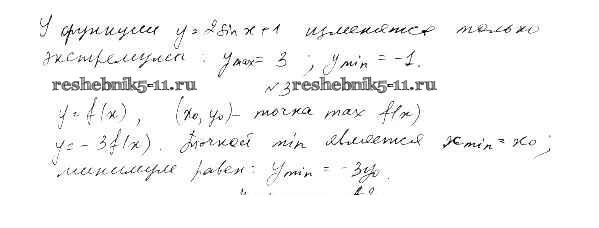 У функции y = 2 sin x + 1 изменятся только
экстремумы: y max = 3 ; y min = -1.
reshebnik5-11.ru
№3
y = f(x), (x₀, y₀) – точка max f(x)
y = -3f(x). Точкой min является x min = x₀;
минимум равен: y min = -3y₀.